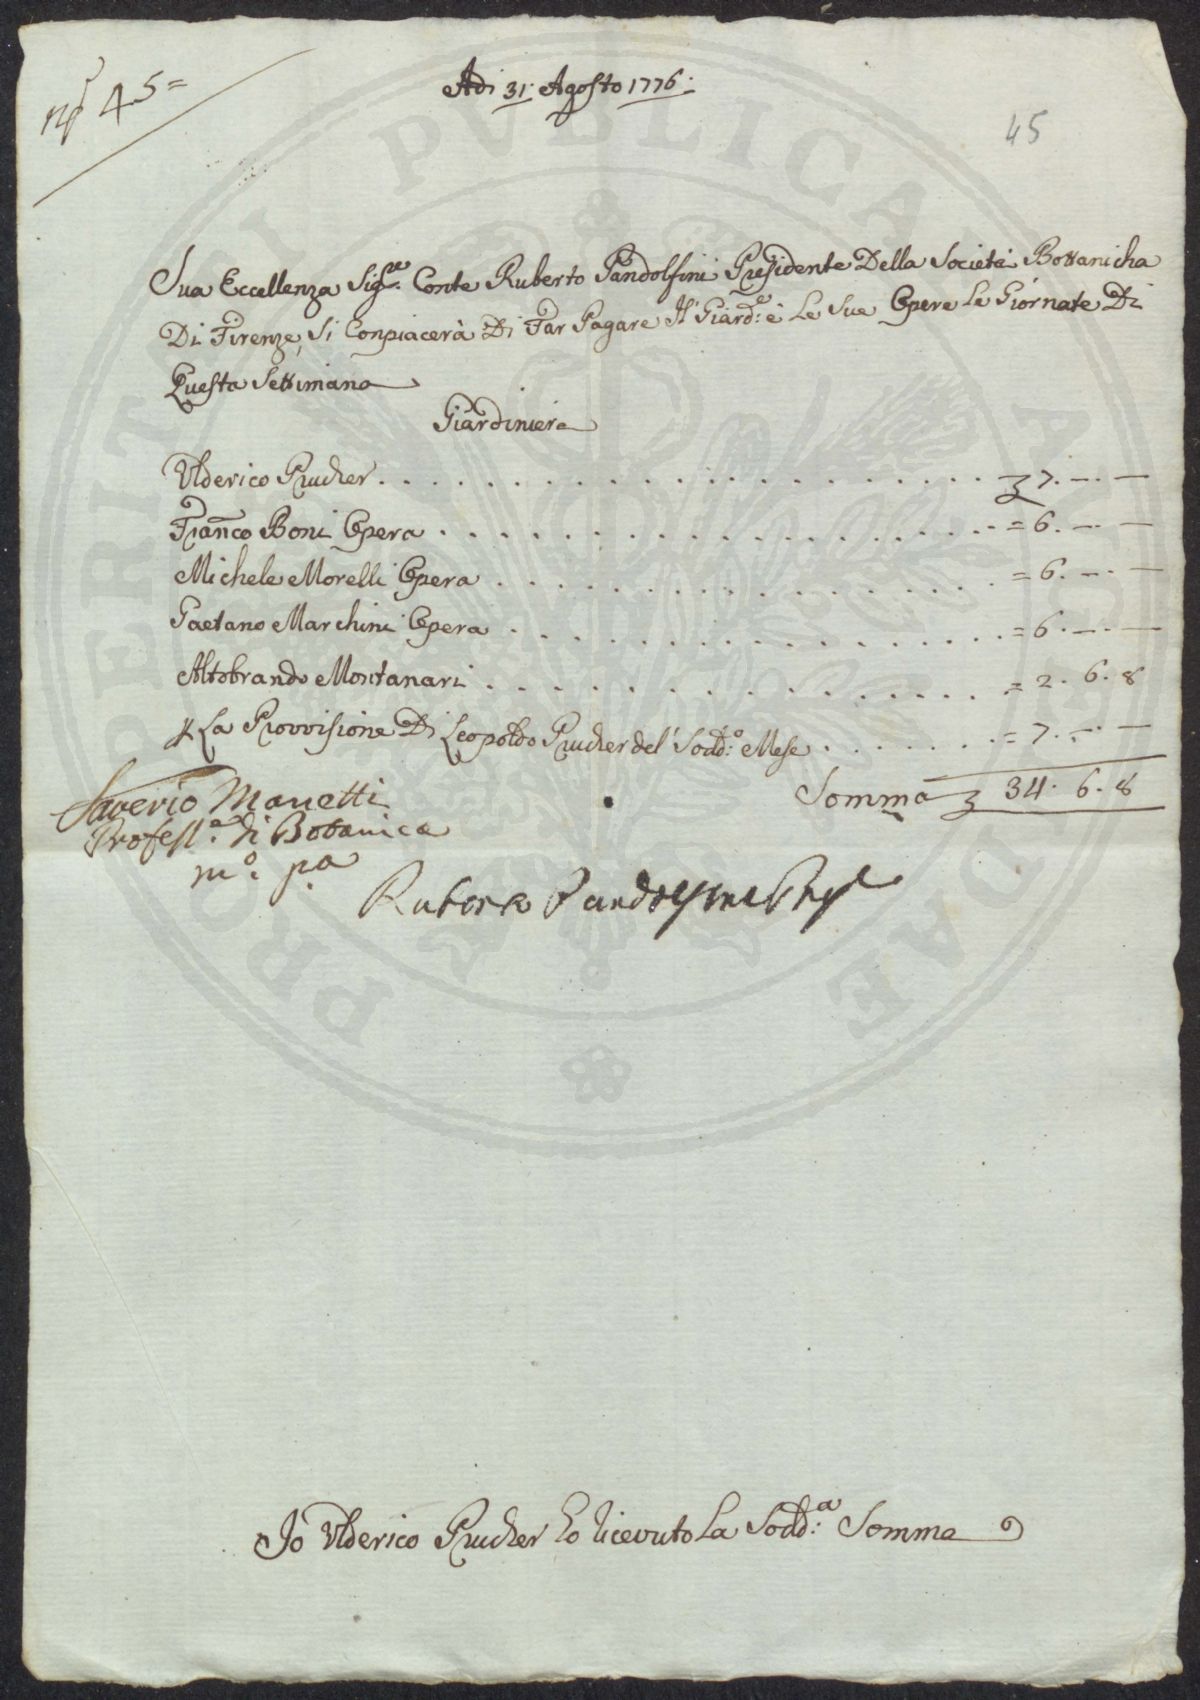 nº 45=
Adi 31. Agosto 1776.
45
Sua Eccellenza Sigre. Conte Ruberto Pandolfini Presidente Della Società Bottanicha
Di Firenze, Si Conpiacerà Di Far Pagare Il Giarde: è Le Sue Opere Le Giornate Di
Questa Settimana
Giardiniera
Ulderico Prucher . . . . . . 7. — —
Franco Boni Opera . . . . . . = 6. — —
Michele Morelli Opera . . . . . . = 6. — —
Gaetano Marchini Opera . . . . . . = 6. — —
Altobrando Montanari . . . . . . = 2. 6. 8
La Provvisione Di Leopoldo Prucher del' Sodd:o Mese . . . . . . = 7. — —
Somma 34. 6. 8
Saverio Manetti
Profess.e di Botanica
mo. pa
Ruberto Pandolfini Pres
Io Ulderico Prucher ho ricevuto La Sodd:a Somma
PROPERNITATI PVBLICAE